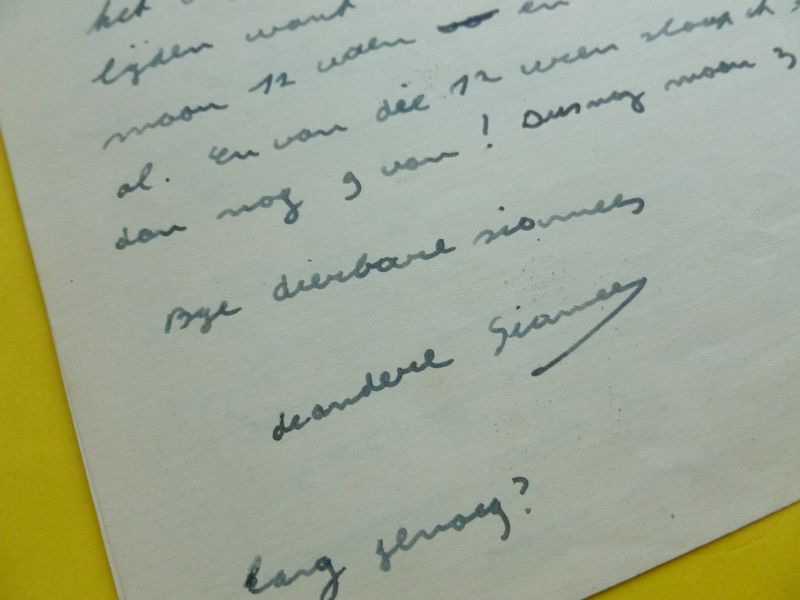 het
lijden want
maar 12 uren en
al. En van die 12 uren slaap ik
dan nog 9 van! Dusnog maar 3
Bye dierbare siamees
deandere Siamees
lang genoeg?